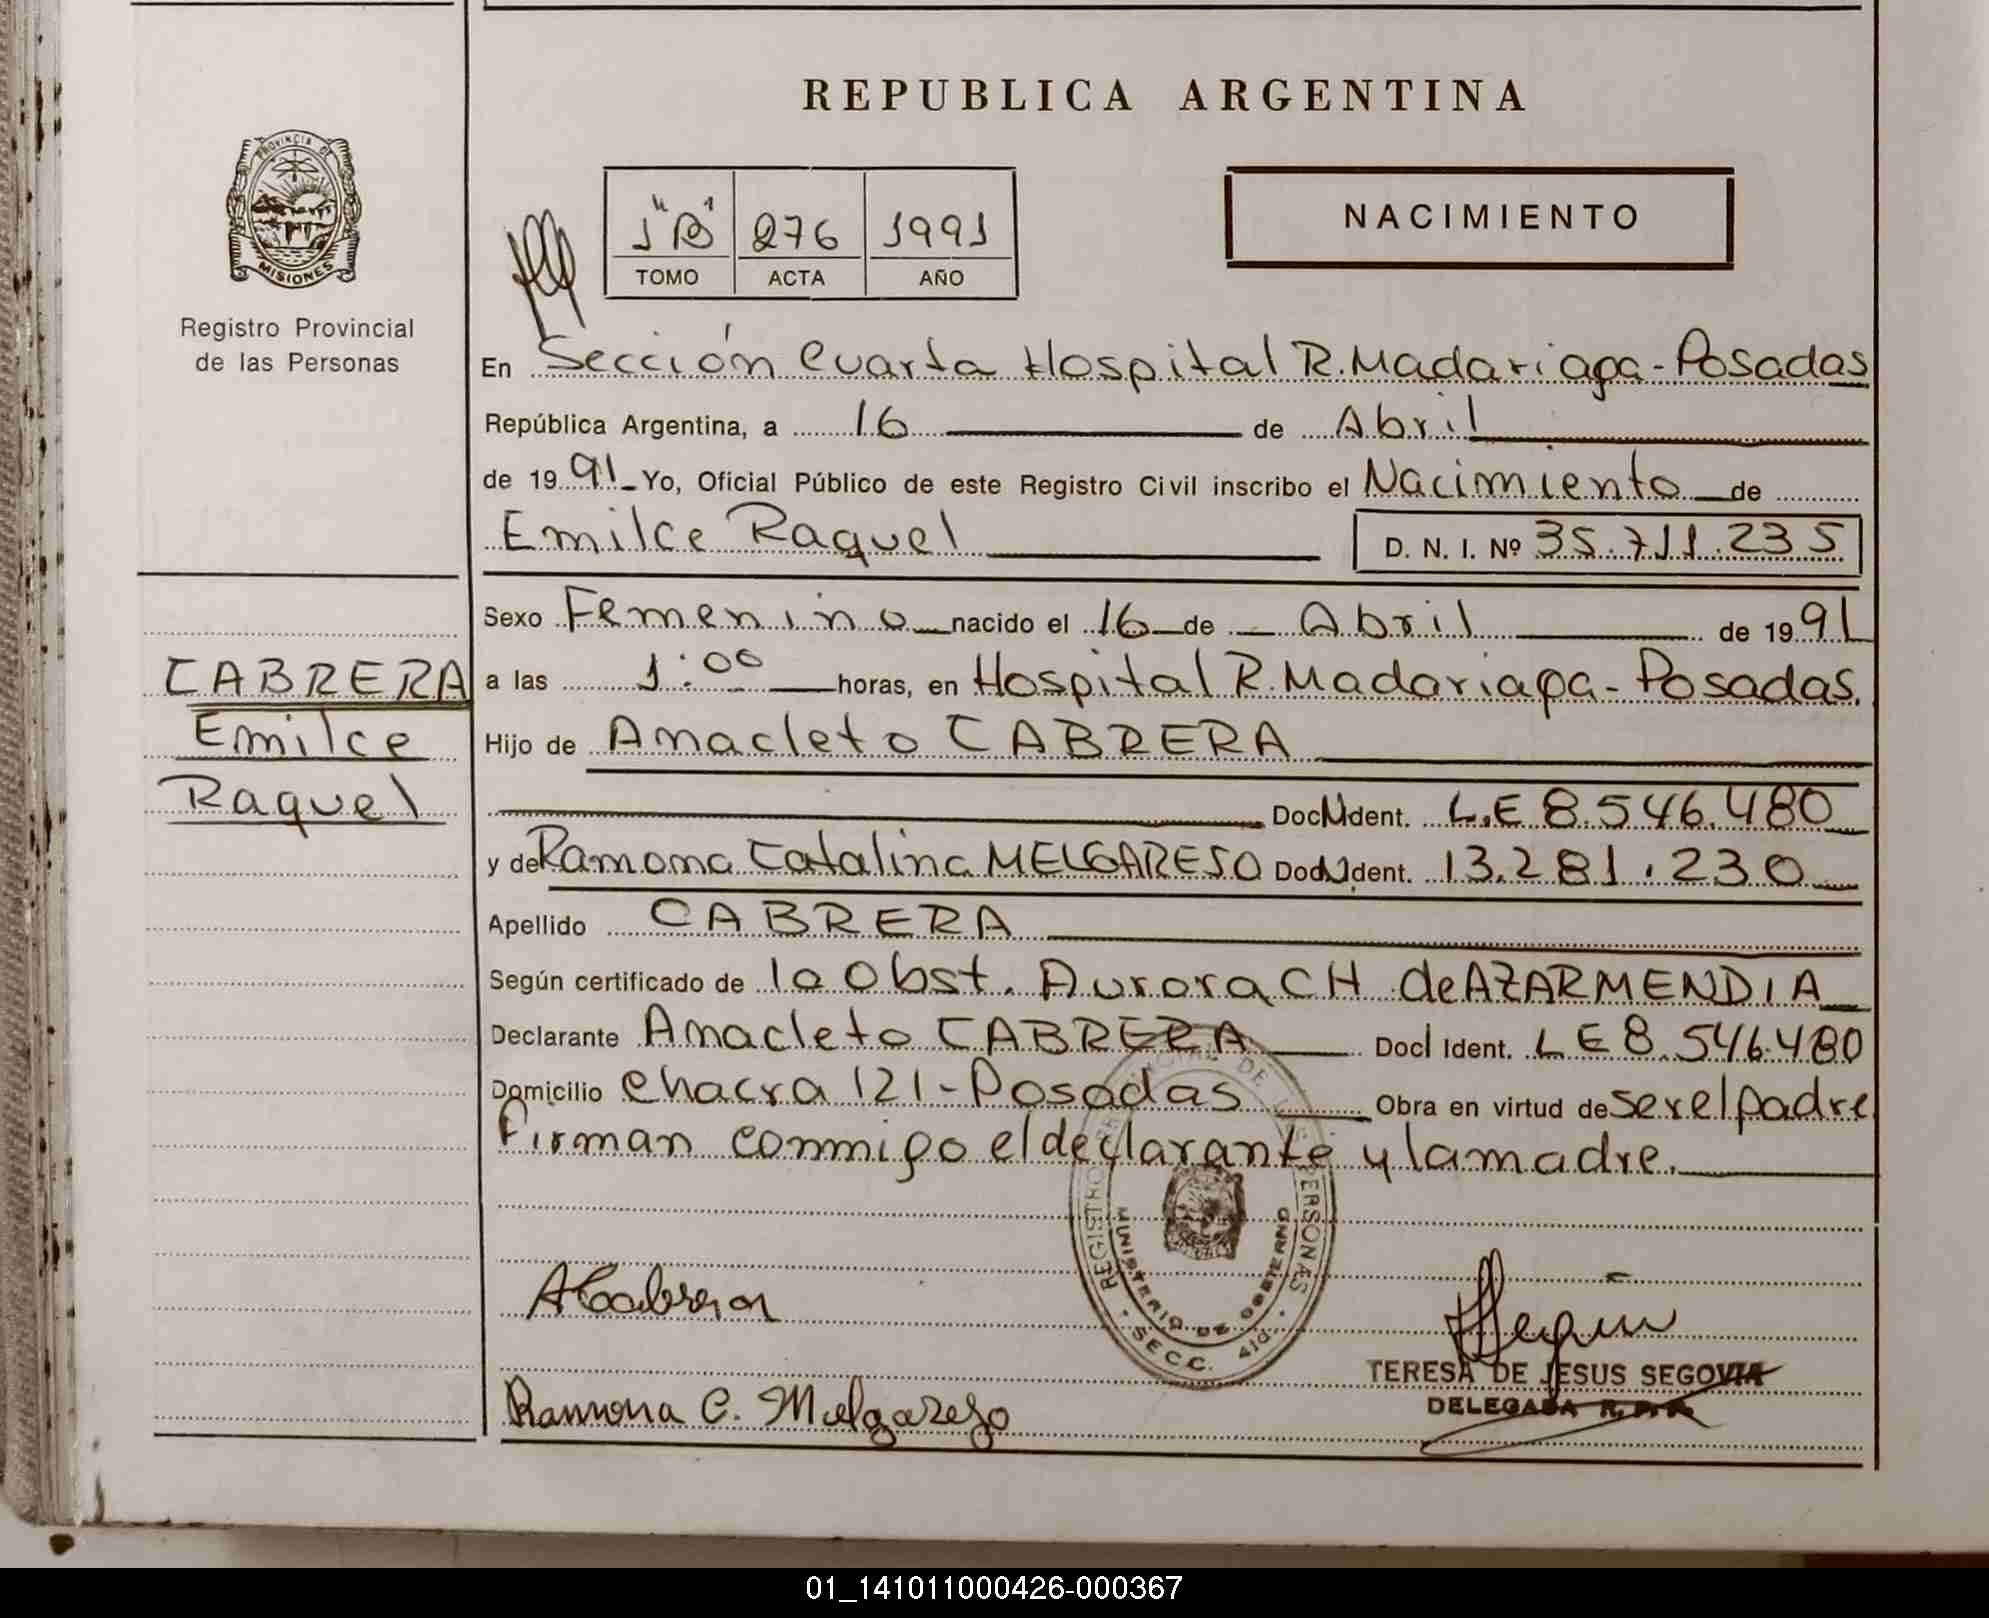 REPUBLICA ARGENTINA
PROVINCIA DE
MISIONES
Registro Provincial
de las Personas
1 "B" 276 1991
TOMO ACTA AÑO
NACIMIENTO
En Sección Cuarta Hospital R. Madariaga - Posadas
República Argentina, a 16 de Abril
de 1991 Yo, Oficial Público de este Registro Civil inscribo el Nacimiento de
Emilce Raquel D. N. I. Nº 35.711.235
Sexo Femenino nacido el 16 de Abril de 1991
CABRERA
Emilce
Raquel
a las 1:00 horas, en Hospital R. Madariaga - Posadas.
Hijo de Anacleto CABRERA
Doc. Ident. L.E 8.546.480
y de Ramona Catalina MELGAREJO Doc. Ident. 13.281.230
Apellido CABRERA
Según certificado de la Obst. Aurora CH de AZARMENDIA
Declarante Anacleto CABRERA Doc. Ident. L E 8.546.480
Domicilio chacra 121 - Posadas Obra en virtud de ser el padre
Firman conmigo el declarante y la madre.
REGISTRO DE LAS PERSONAS
MINISTERIO DE GOBIERNO
SECC. 4ta.
ACabrera
TERESA DE JESUS SEGOVIA
DELEGADA R. P. P.
Ramona C. Melgarejo
01_141011000426-000367